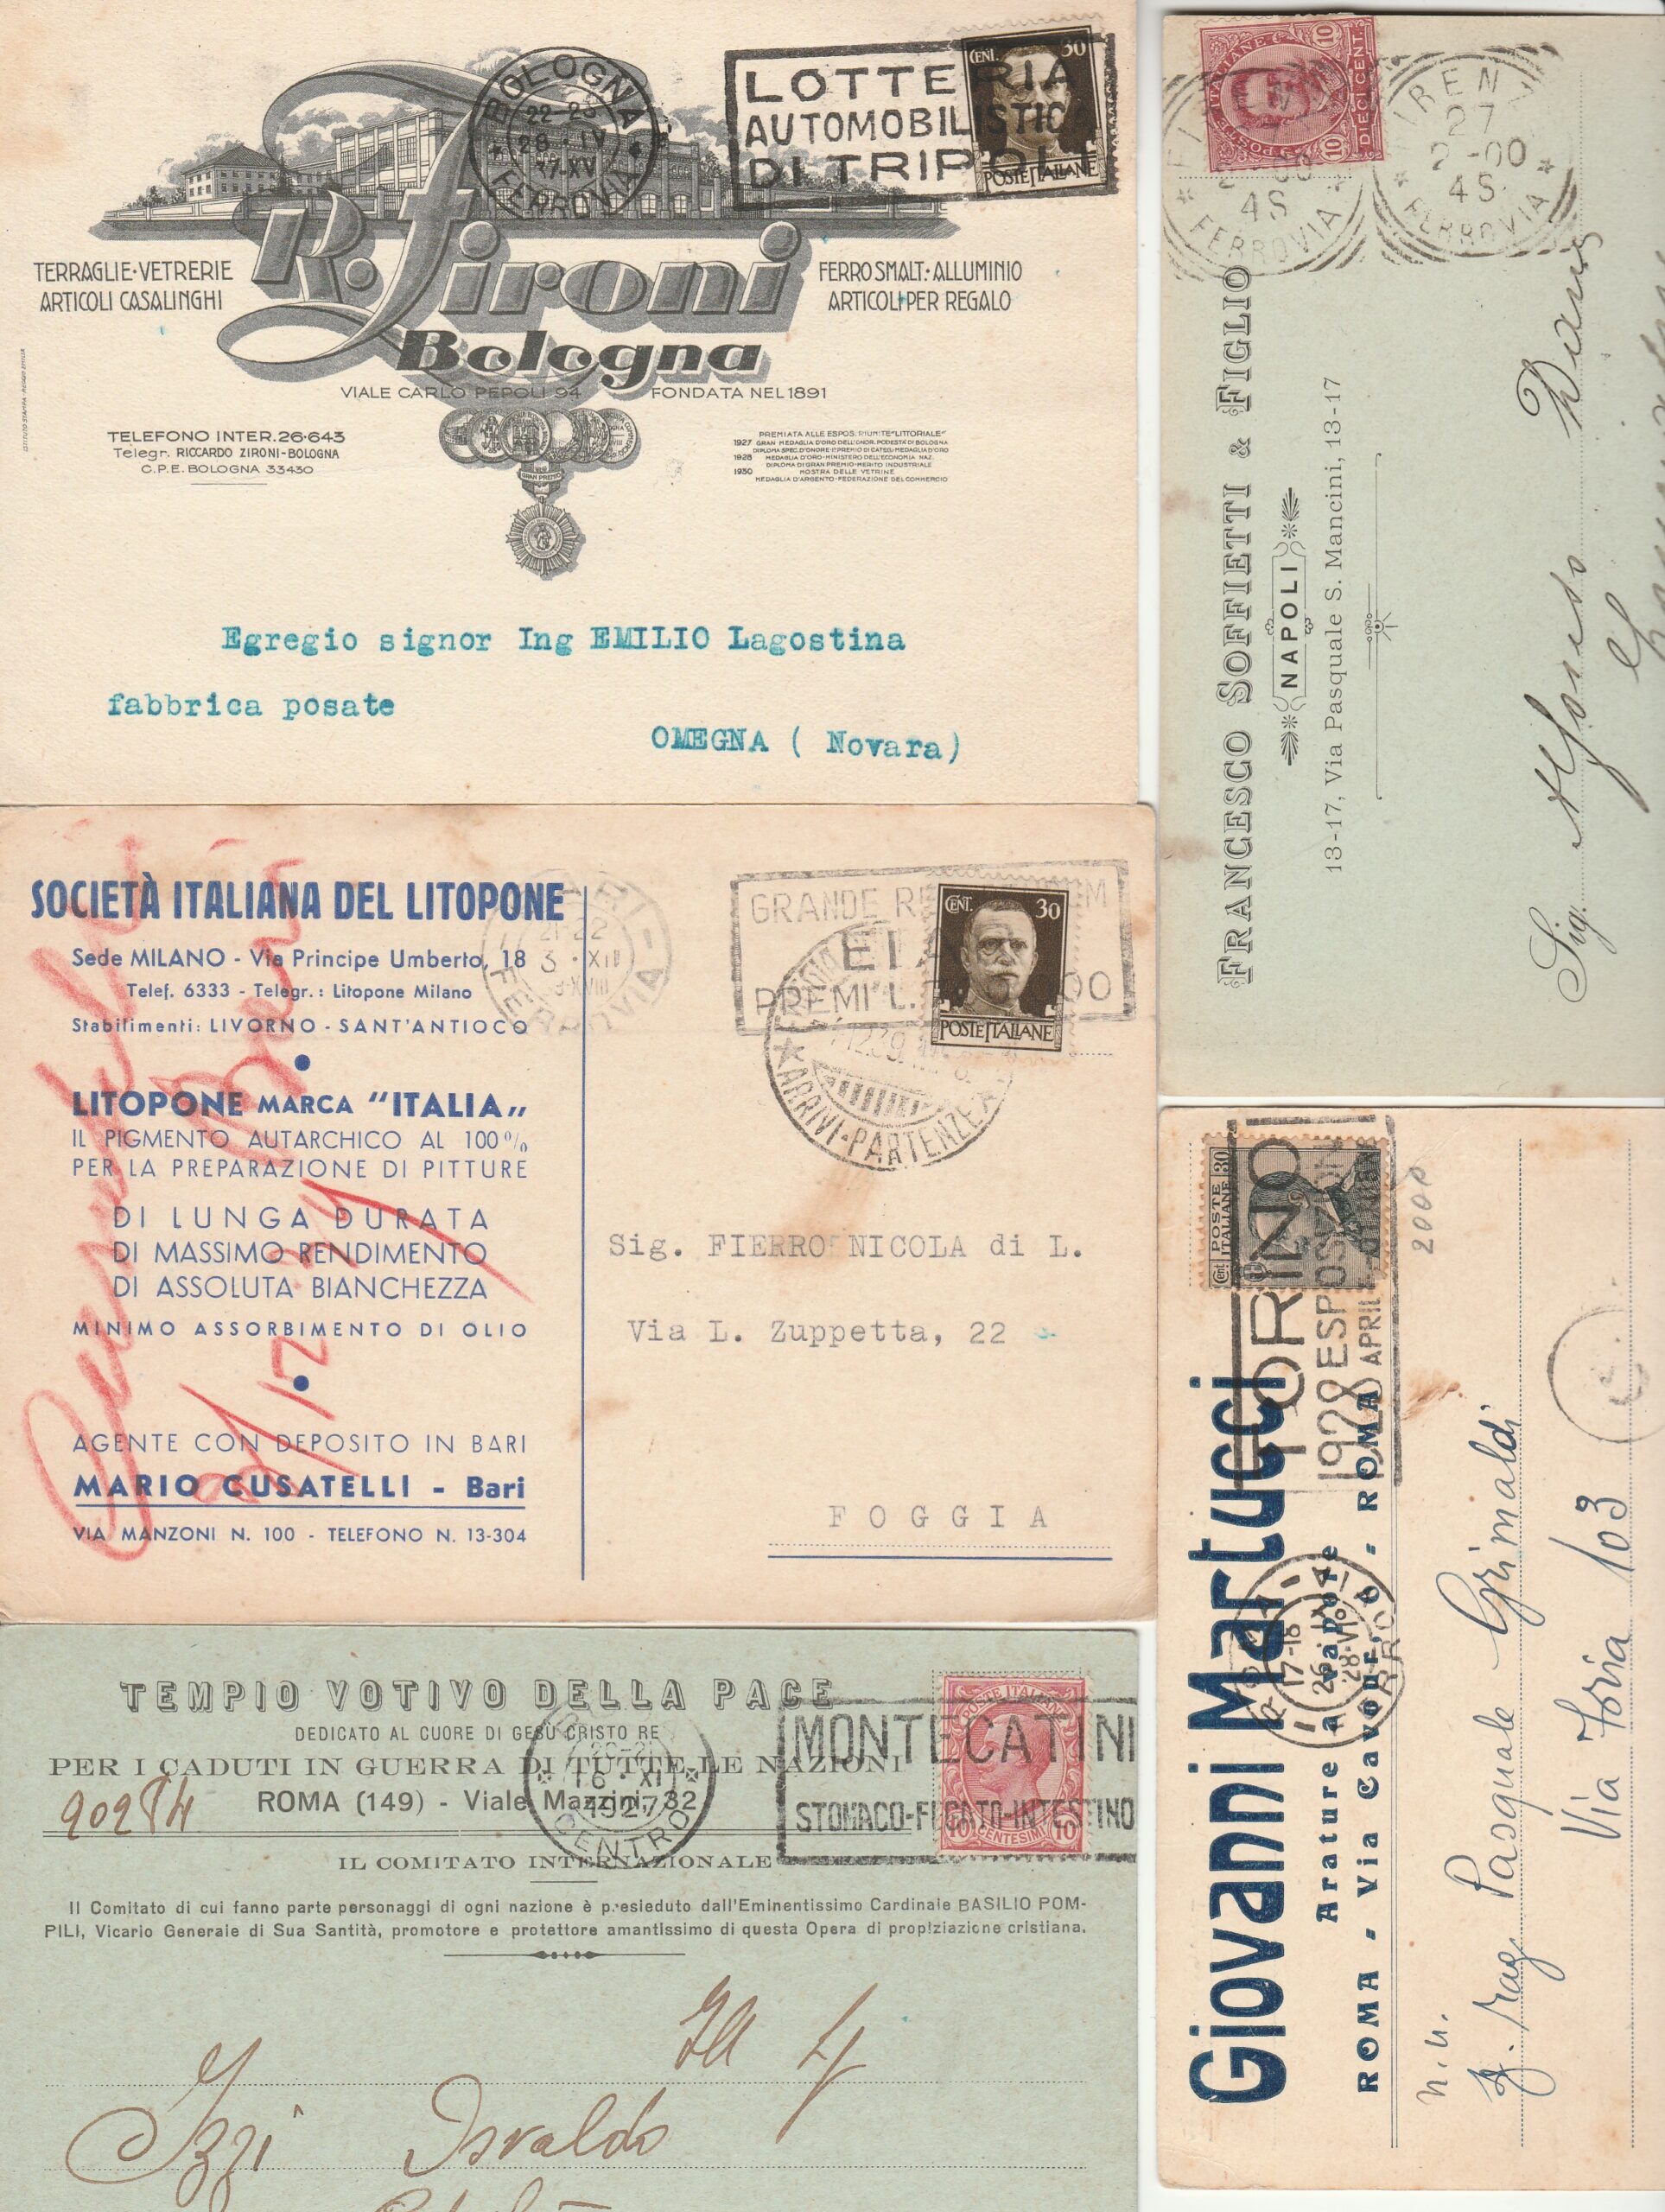 BOLOGNA
22-23
28·IV
37-XV
FERROVIA
LOTTERIA
AUTOMOBILISTICA
DI TRIPOLI
CENT. 30
POSTE ITALIANE
R. Zironi
Bologna
TERRAGLIE·VETRERIE
ARTICOLI CASALINGHI
FERRO SMALT.·ALLUMINIO
ARTICOLI PER REGALO
VIALE CARLO PEPOLI 94 FONDATA NEL 1891
TELEFONO INTER. 26·643
Telegr. RICCARDO ZIRONI-BOLOGNA
C.P.E. BOLOGNA 33430
GRAN PREMIO
PREMIATA ALLE ESPOS. RIUNITE "LITTORIALE"
1927 GRAN MEDAGLIA D'ORO DELL'ONOR. PODESTÀ DI BOLOGNA
DIPLOMA SPEC. D'ONORE-1° PREMIO DI CATEG.-MEDAGLIA D'ORO
1928 MEDAGLIA D'ORO-MINISTERO DELL'ECONOMIA NAZ.
DIPLOMA DI GRAN PREMIO-MERITO INDUSTRIALE
1930 MOSTRA DELLE VETRINE
MEDAGLIA D'ARGENTO-FEDERAZIONE DEL COMMERCIO
Egregio signor Ing EMILIO Lagostina
fabbrica posate
OMEGNA ( Novara)
SOCIETÀ ITALIANA DEL LITOPONE
Sede MILANO - Via Principe Umberto, 18
Telef. 6333 - Telegr.: Litopone Milano
Stabilimenti: LIVORNO - SANT'ANTIOCO
LITOPONE MARCA "ITALIA„
IL PIGMENTO AUTARCHICO AL 100%
PER LA PREPARAZIONE DI PITTURE
DI LUNGA DURATA
DI MASSIMO RENDIMENTO
DI ASSOLUTA BIANCHEZZA
MINIMO ASSORBIMENTO DI OLIO
AGENTE CON DEPOSITO IN BARI
MARIO CUSATELLI - Bari
VIA MANZONI N. 100 - TELEFONO N. 13-304
21-22
3·XII
FERROVIA
GRANDE
PREMI L.
CENT. 30
POSTE ITALIANE
ARRIVI-PARTENZE
Sig. FIERRO NICOLA di L.
Via L. Zuppetta, 22
FOGGIA
TEMPIO VOTIVO DELLA PACE
DEDICATO AL CUORE DI GESÙ CRISTO RE
PER I CADUTI IN GUERRA DI TUTTE LE NAZIONI
ROMA (149) - Viale Mazzini, 32
16·XI
1927
CENTRO
MONTECATINI
STOMACO-FEGATO-INTESTINO
POSTE ITALIANE
10 CENTESIMI 10
IL COMITATO INTERNAZIONALE
Il Comitato di cui fanno parte personaggi di ogni nazione è presieduto dall'Eminentissimo Cardinale BASILIO POM-
PILI, Vicario Generale di Sua Santità, promotore e protettore amantissimo di questa Opera di propiziazione cristiana.
Izzi Osvaldo
POSTE ITALIANE
10 DIECI CENT. 10
27
2-00
4S
FERROVIA
4S
FERROVIA
FRANCESCO SOFFIETTI & FIGLIO
NAPOLI
13-17, Via Pasquale S. Mancini, 13-17
Sig. Alfonso
POSTE
ITALIANE
Cent 30
TORINO
1928 ESPOSIZIONI
APRILE
2000
17-18
26·IX
28·VI
Giovanni Martucci
Arature a vapore
ROMA - Via Cavour, - ROMA
rag. Pasquale Grimaldi
Via Foria 103